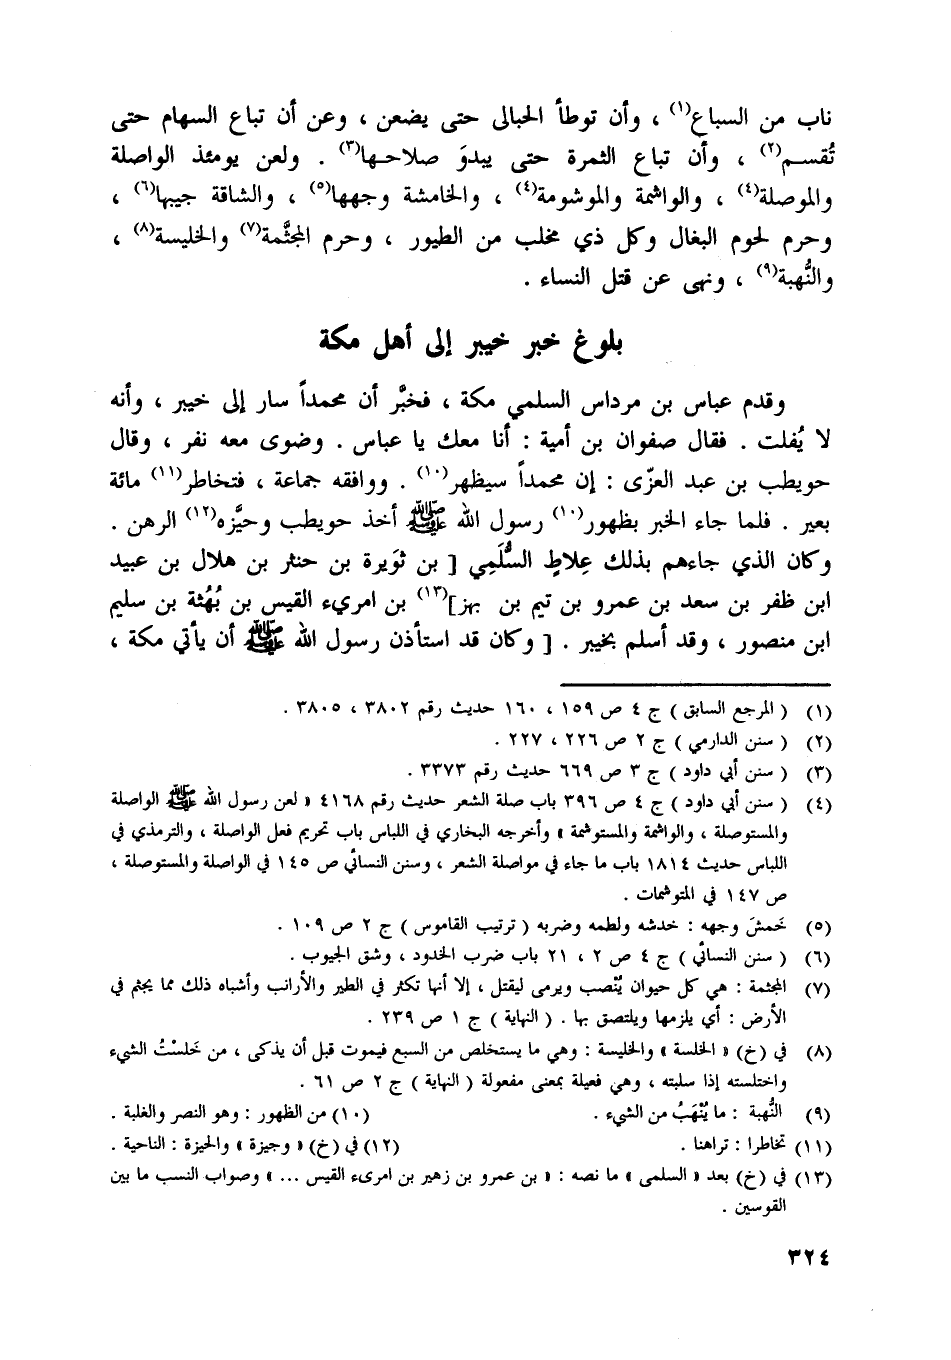 ناب من السباع(١) ، وأن توطأ الحبالى حتى يضعن ، وعن أن تباع السهام حتى
تُقسم(٢) ، وأن تباع الثمرة حتى يبدوَ صلاحها(٣) . ولعن يومئذ الواصلة
والموصلة(٤) ، والواشمة والموشومة(٤) ، والخامشة وجهها(٥) ، والشاقة جيبها(٦) ،
وحرم لحوم البغال وكل ذي مخلب من الطيور ، وحرم المجثَّمة(٧) والخليسة(٨) ،
والنُّهبة(٩) ، ونهى عن قتل النساء .
بلوغ خبر خيبر إلى أهل مكة
وقدم عباس بن مرداس السلمي مكة ، فخبَّر أن محمداً سار إلى خيبر ، وأنه
لا يُفلت . فقال صفوان بن أمية : أنا معك يا عباس . وضوى معه نفر ، وقال
حويطب بن عبد العزّى : إن محمداً سيظهر(١٠) . ووافقه جماعة ، فتخاطر(١١) مائة
بعير . فلما جاء الخبر بظهور(١٠) رسول الله ﷺ أخذ حويطب وحيَّزه(١٢) الرهن .
وكان الذي جاءهم بذلك عِلاطٍ السُّلَمِي [ بن ثوَيرة بن حنثر بن هلال بن عبيد
ابن ظفر بن سعد بن عمرو بن تيم بن بهز](١٣) بن امريء القيس بن بُهْثة بن سليم
ابن منصور ، وقد أسلم بخيبر . [ وكان قد استأذن رسول الله ﷺ أن يأتي مكة ،
(١) ( المرجع السابق ) ج ٤ ص ١٥٩ ، ١٦٠ حديث رقم ٣٨٠٢ ، ٣٨٠٥ .
(٢) ( سنن الدارمي ) ج ٢ ص ٢٢٦ ، ٢٢٧ .
(٣) ( سنن أبي داود ) ج ٣ ص ٦٦٩ حديث رقم ٣٣٧٣ .
(٤) ( سنن أبي داود ) ج ٤ ص ٣٩٦ باب صلة الشعر حديث رقم ٤١٦٨ « لعن رسول الله ﷺ الواصلة
والمستوصلة ، والواشمة والمستوشمة » وأخرجه البخاري في اللباس باب تحريم فعل الواصلة ، والترمذي في
اللباس حديث ١٨١٤ باب ما جاء في مواصلة الشعر ، وسنن النسائي ص ١٤٥ في الواصلة والمستوصلة ،
ص ١٤٧ في المتوشمات .
(٥) خَمشَ وجهه : خدشه ولطمه وضربه ( ترتيب القاموس ) ج ٢ ص ١٠٩ .
(٦) ( سنن النسائي ) ج ٤ ص ٢ ، ٢١ باب ضرب الخدود ، وشق الجيوب .
(٧) المجثمة : هي كل حيوان يُنْصب ويرمى ليقتل ، إلا أنها تكثر في الطير والأرانب وأشباه ذلك مما يجثم في
الأرض : أي يلزمها ويلتصق بها . ( النهاية ) ج ١ ص ٢٣٩ .
(٨) في (خ) « الخلسة » والخليسة : وهي ما يستخلص من السبع فيموت قبل أن يذكى ، من خَلسْتُ الشيء
واختلسته إذا سلبته ، وهي فعيلة بمعنى مفعولة ( النهاية ) ج ٢ ص ٦١ .
(٩) النُّهبة : ما يُنْهَبُ من الشيء . (١٠) من الظهور : وهو النصر والغلبة .
(١١) تخاطرا : تراهنا . (١٢) في (خ) « وجيزة » والحيزة : الناحية .
(١٣) في (خ) بعد « السلمى » ما نصه : « بن عمرو بن زهير بن امرىء القيس ... » وصواب النسب ما بين
القوسين .
٣٢٤